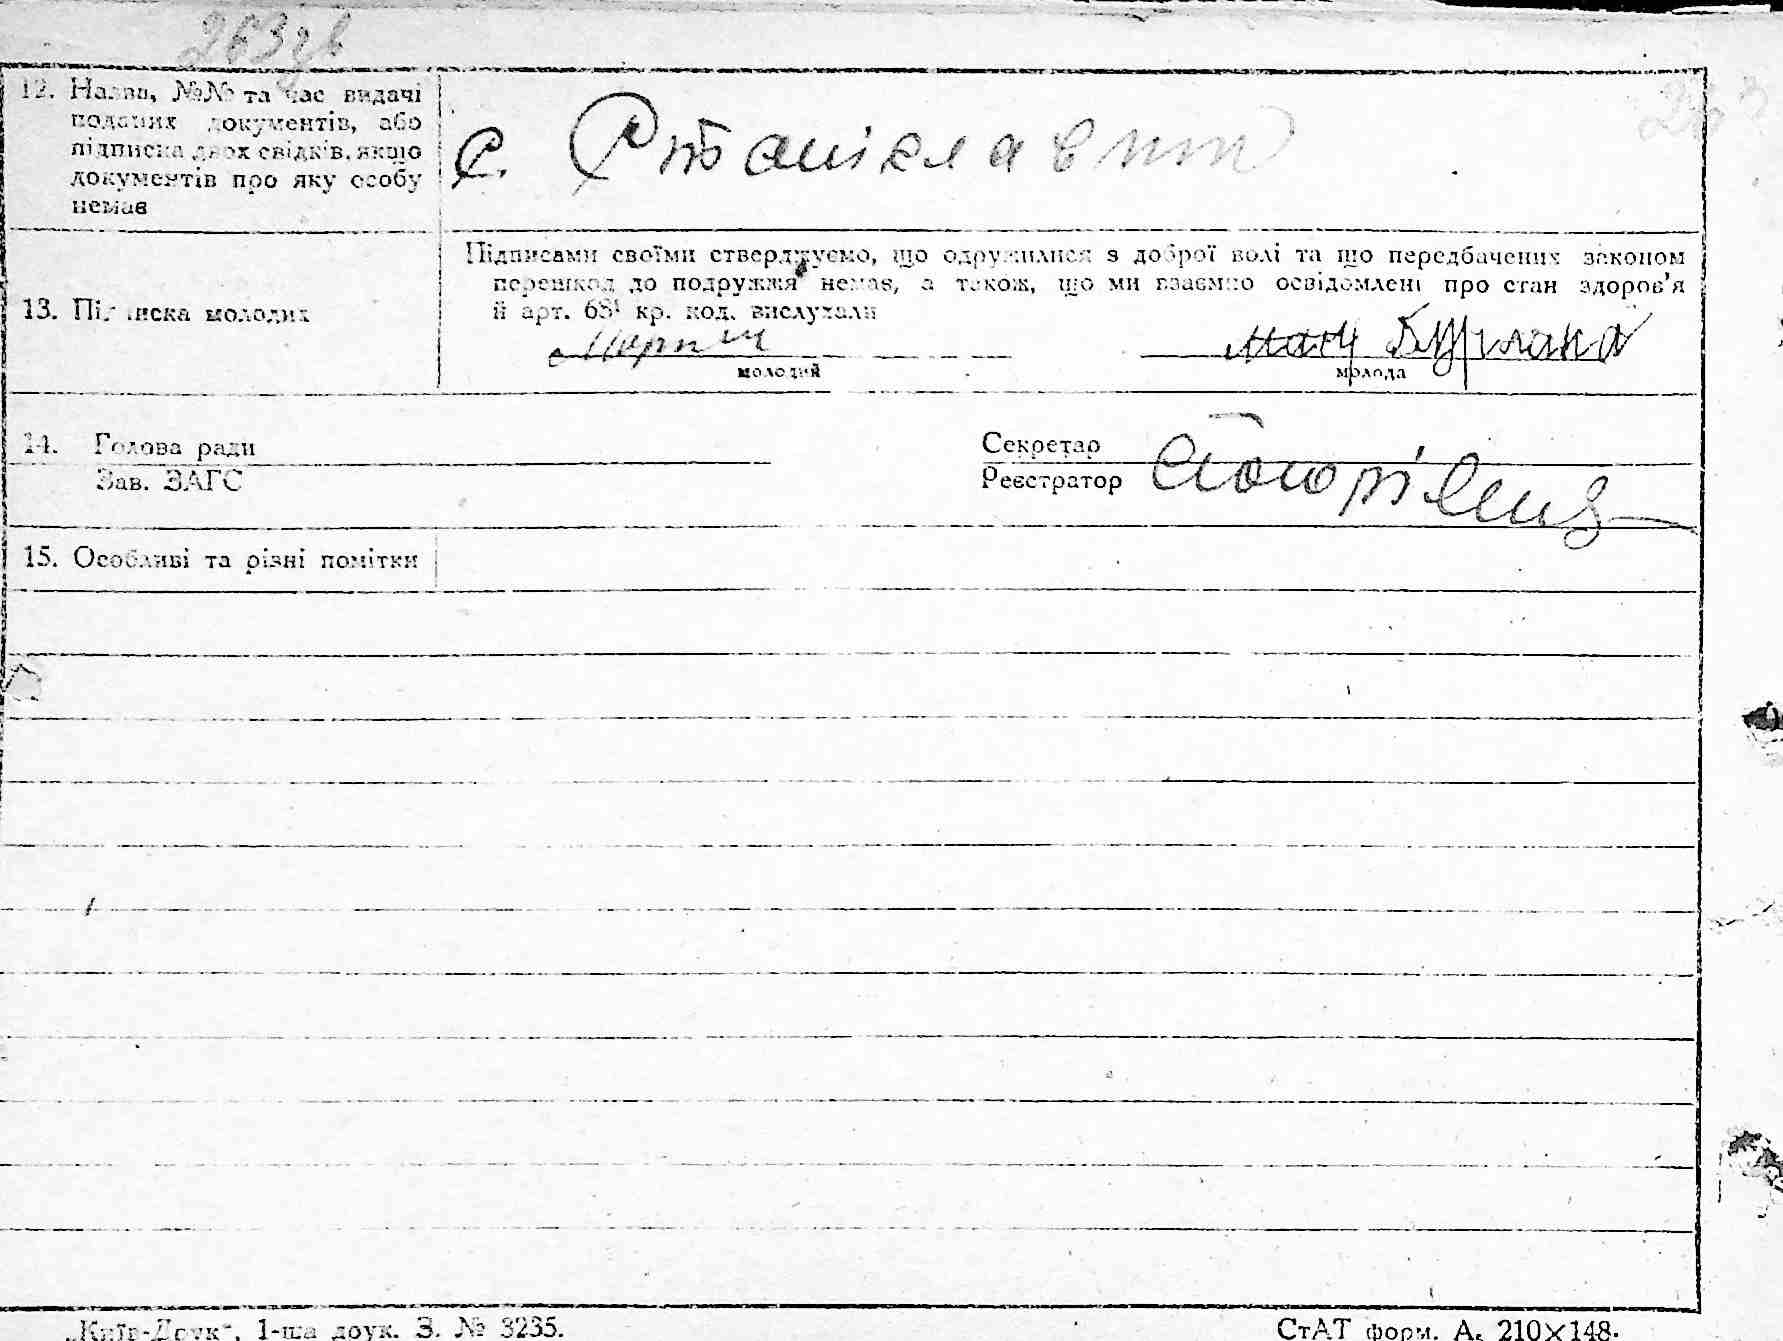 263зв
12. Назва, №№ та час видачі
поданих документів, або
підписка двох свідків, якщо
документів про яку особу
немає
с. Станіславчик
13. Підписка молодих
Підписами своїми стверджуємо, що одружилися з доброї волі та що передбачених законом
перешкод до подружжя немає, а також, що ми взаємно освідомлені про стан здоров'я
й арт. 68¹ кр. код. вислухали
молодий
Бурлака
молода
14. Голова ради
Секретар
Зав. ЗАГС
Реєстратор
15. Особливі та різні помітки
„Київ-Друк“, 1-ша друк. З. № 3235.
СтАТ форм. А₅ 210×148.